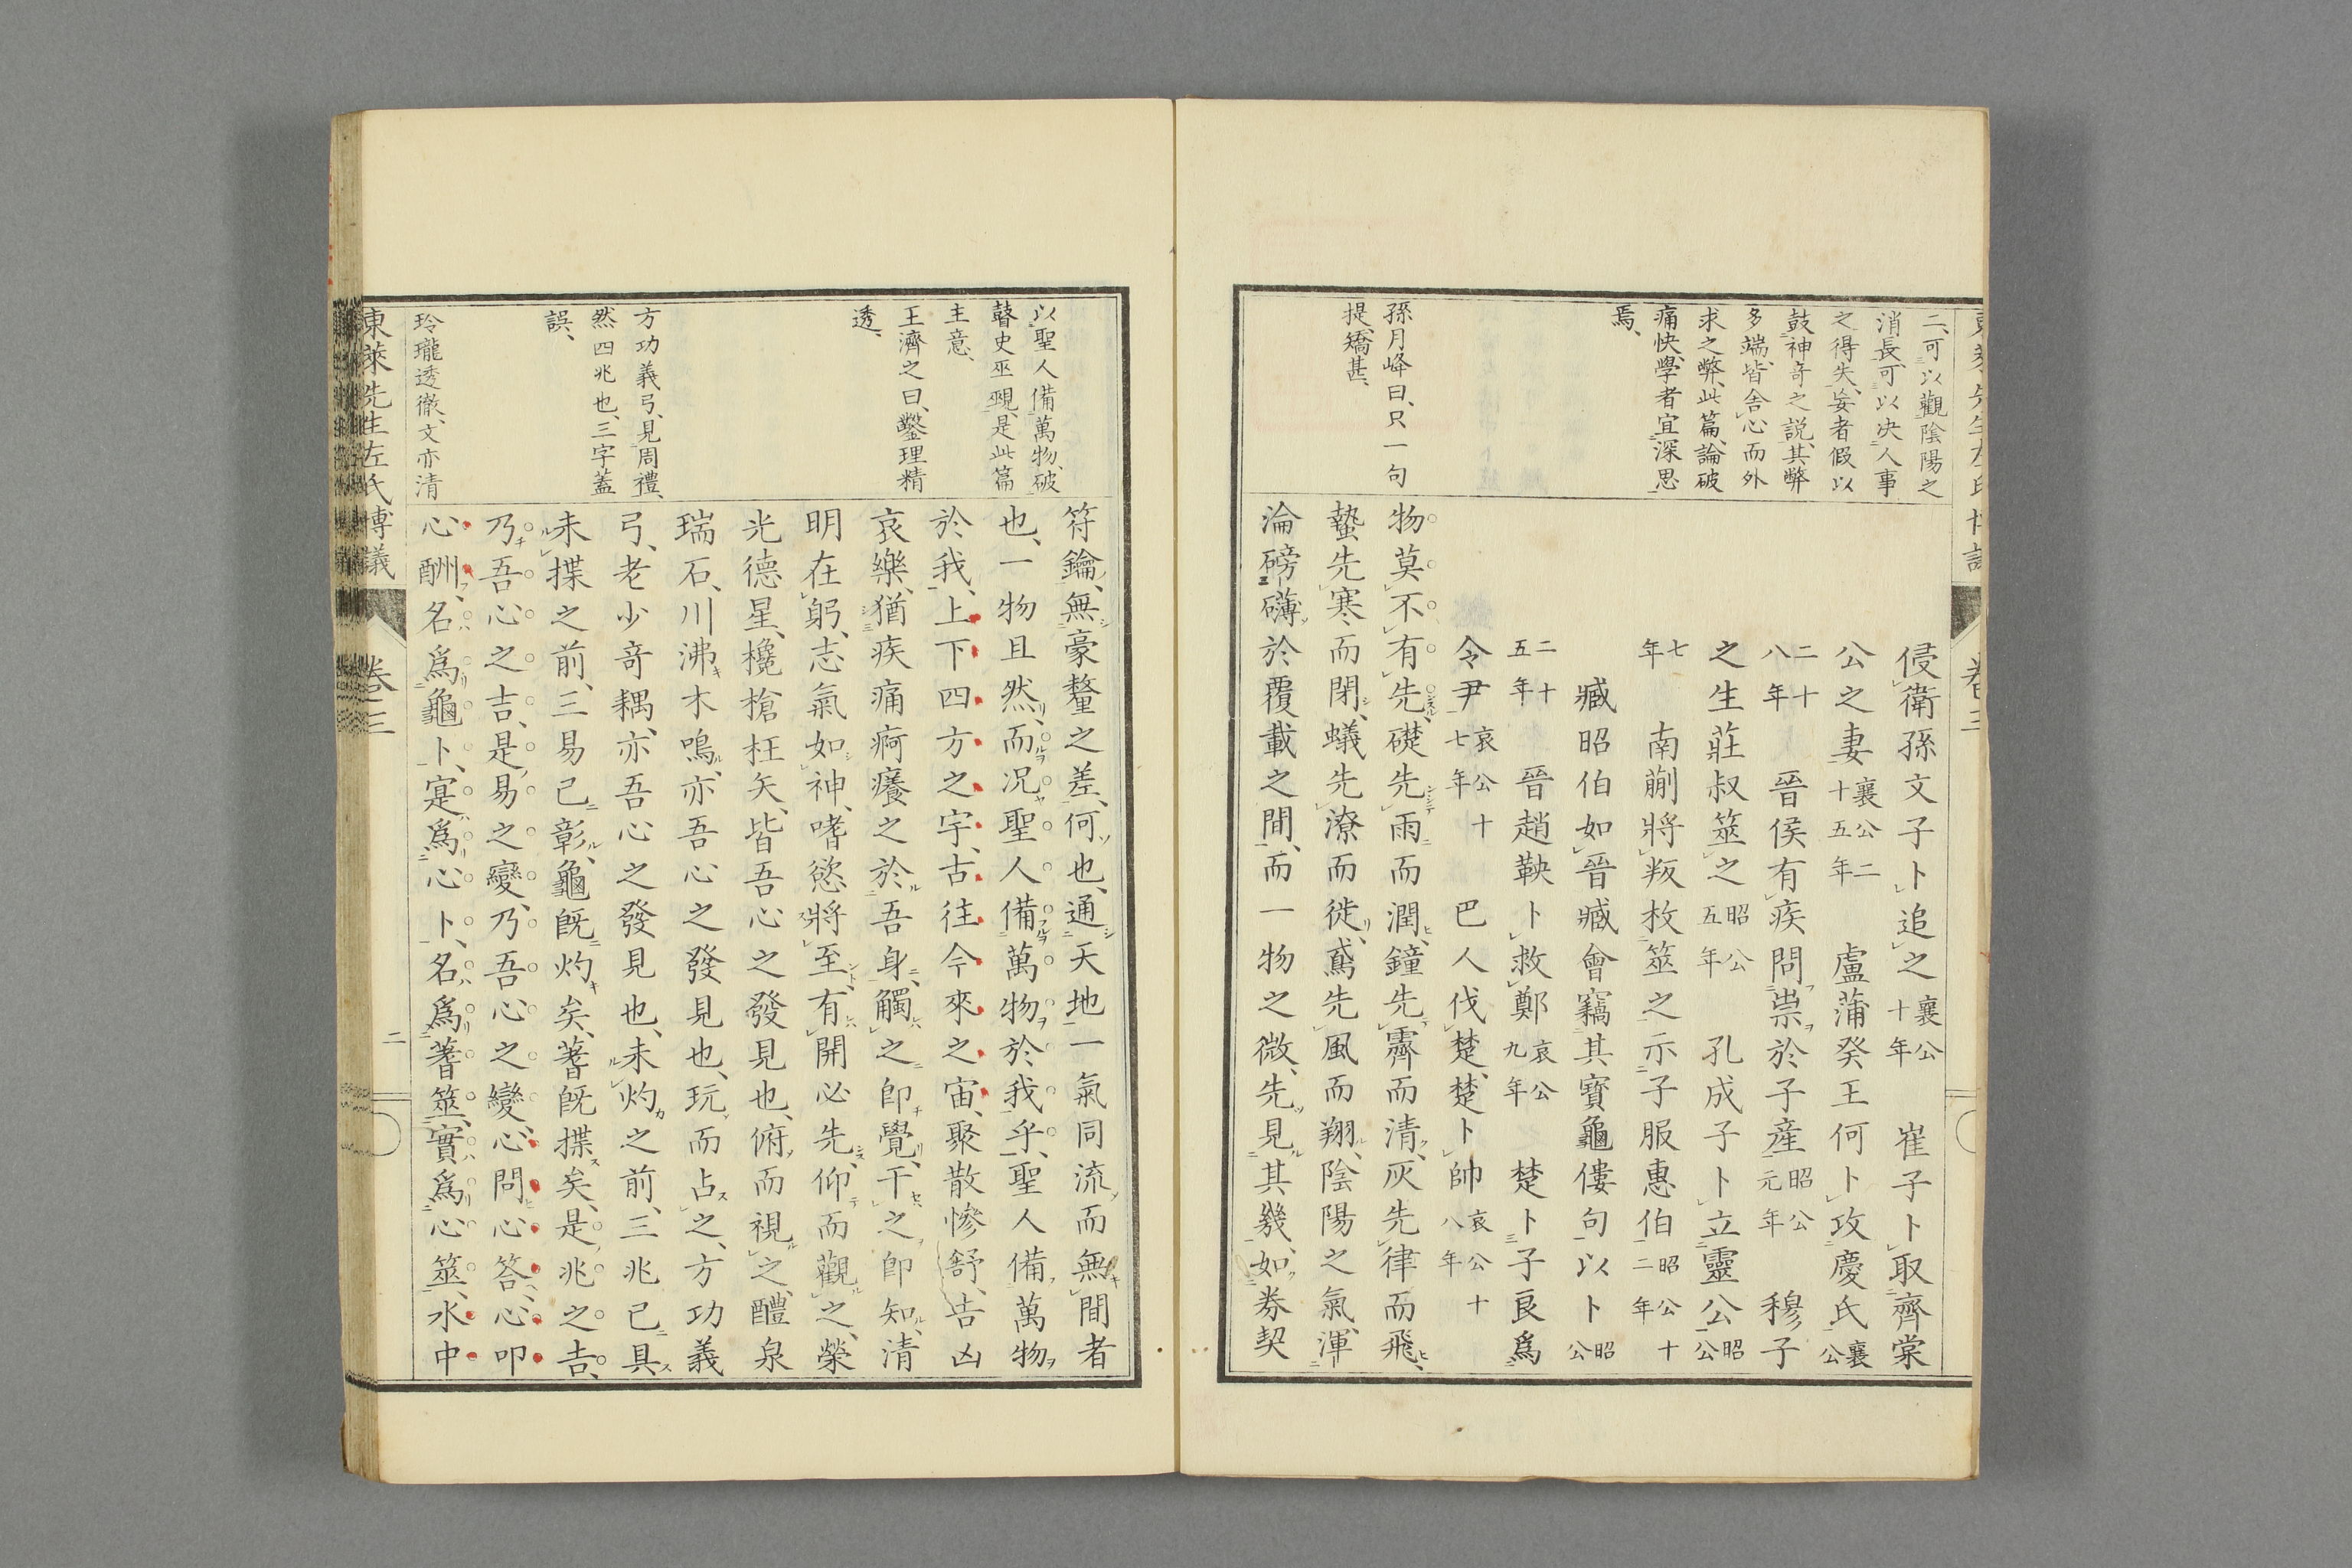 二、可以觀陰陽之
消長、可以决人事
之得失、妄者假以
鼓神奇之説、其弊
多端、皆舍心而外
求之弊、此篇論破
痛快、學者宜深思
焉、
孫月峰曰、只一句
提、矯甚、
侵衛孫文子卜追之襄公十年 崔子卜取齊棠
公之妻襄公二十五年 盧蒲癸王何卜攻慶氏襄公
二十八年 晉侯有疾問祟於子産昭公元年 穆子
之生莊叔筮之昭公五年 孔成子卜立靈公昭公
七年 南蒯將叛枚筮之示子服惠伯昭公十二年
臧昭伯如晉臧會竊其寶龜僂句以卜昭公
二十五年 晉趙鞅卜救鄭哀公九年 楚卜子良爲
令尹哀公十七年 巴人伐楚、楚卜帥哀公十八年
物莫不有先、礎先雨而潤、鐘先霽而清、灰先律而飛、
蟄先寒而閉、蟻先潦而徙、鳶先風而翔、陰陽之氣、渾
淪磅礴於覆載之間、而一物之微、先見其幾、如券契
以聖人備萬物、破
瞽史巫覡、是此篇
主意、
王濟之曰、鑿理精
透、
方功義弓、見周禮、
然四兆也、三字蓋
誤、
玲瓏透徹、文亦清
符鑰、無豪釐之差、何也、通天地一氣同流而無間者
也、一物且然、而况聖人備萬物於我乎、聖人備萬物
於我、上下四方之宇、古往今來之宙、聚散慘舒、吉凶
哀樂、猶疾痛痾癢之於吾身、觸之即覺、干之即知、清
明在躬、志氣如神、嗜慾將至、有開必先、仰而觀之、榮
光德星、欃槍枉矢、皆吾心之發見也、俯而視之、醴泉
瑞石、川沸木鳴、亦吾心之發見也、玩而占之、方功義
弓、老少奇耦、亦吾心之發見也、未灼之前、三兆已具
未揲之前、三易已彰、龜既灼矣、蓍既揲矣、是兆之吉、
乃吾心之吉、是易之變、乃吾心之變、心問心答、心叩
心酬、名爲龜卜、寔爲心卜、名爲蓍筮、實爲心筮、水中
東萊先生左氏博議 卷之三 二